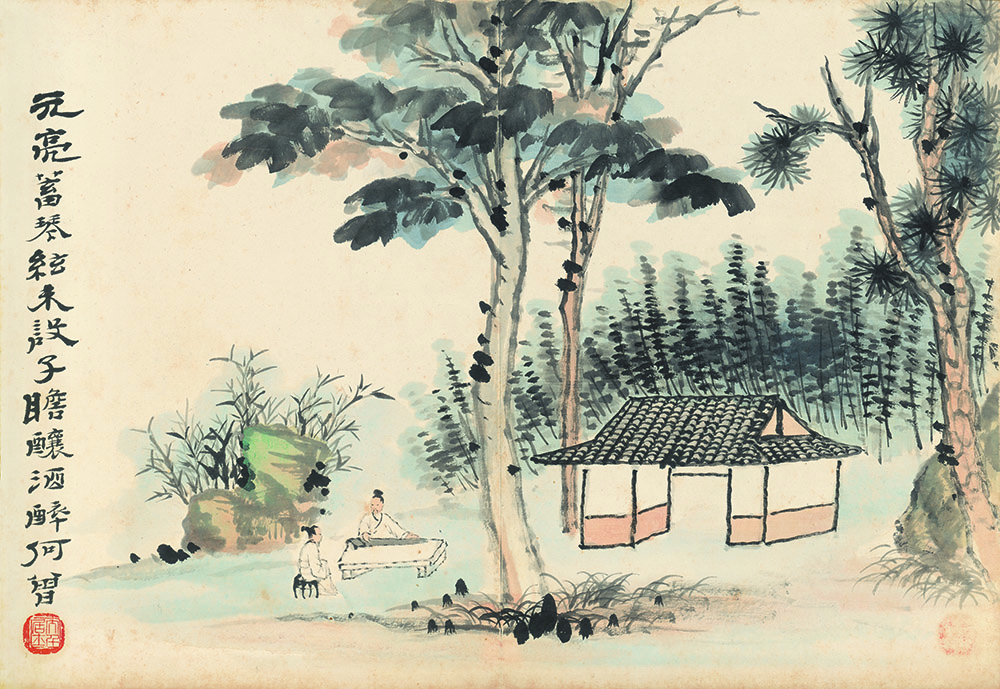 元亮蓄琴絃未設子瞻釀酒醉何曾